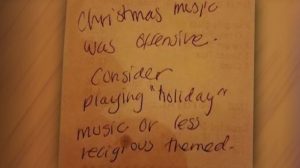 Christmas music
was offensive.
Consider
playing "holiday"
music or less
religious themed.